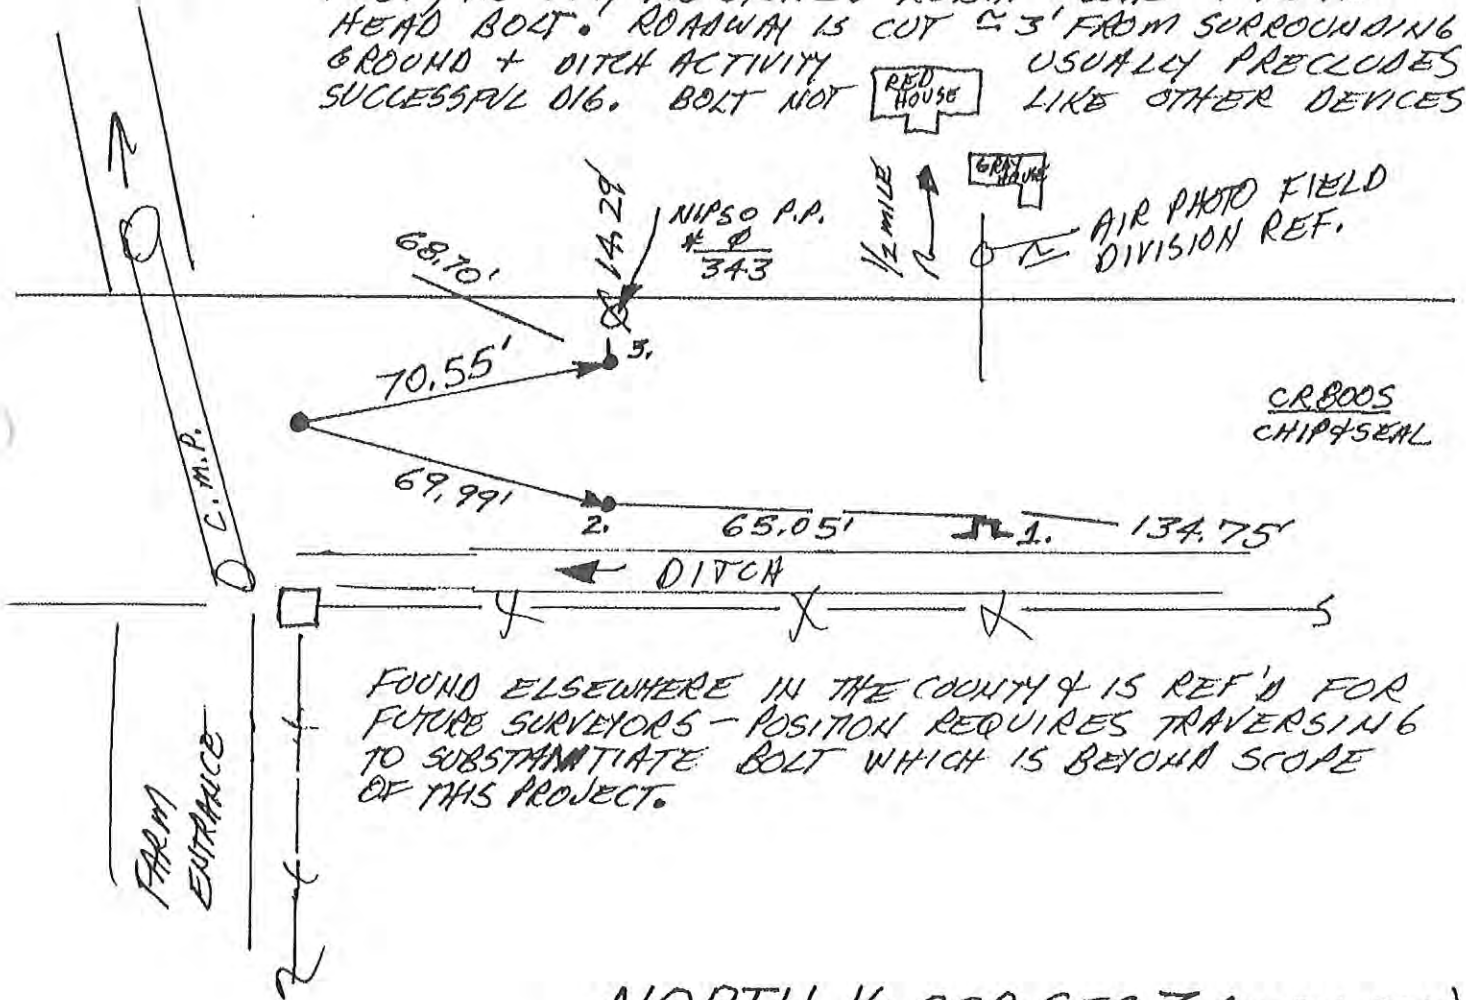 HEAD BOLT. ROADWAY IS CUT ≃ 3' FROM SURROUNDING
GROUND + DITCH ACTIVITY USUALLY PRECLUDES
SUCCESSFUL DIG. BOLT NOT LIKE OTHER DEVICES
RED
HOUSE
GRAY
HOUSE
1/2 MILE
AIR PHOTO FIELD
DIVISION REF.
14.29
NIPSO P.P.
# Ø
343
68.70'
70.55'
3.
C.M.P.
CR800S
CHIP & SEAL
69.99'
2.
65.05'
1.
134.75'
DITCH
FOUND ELSEWHERE IN THE COUNTY & IS REF'D FOR
FUTURE SURVEYORS - POSITION REQUIRES TRAVERSING
TO SUBSTANTIATE BOLT WHICH IS BEYOND SCOPE
OF THIS PROJECT.
FARM
ENTRANCE